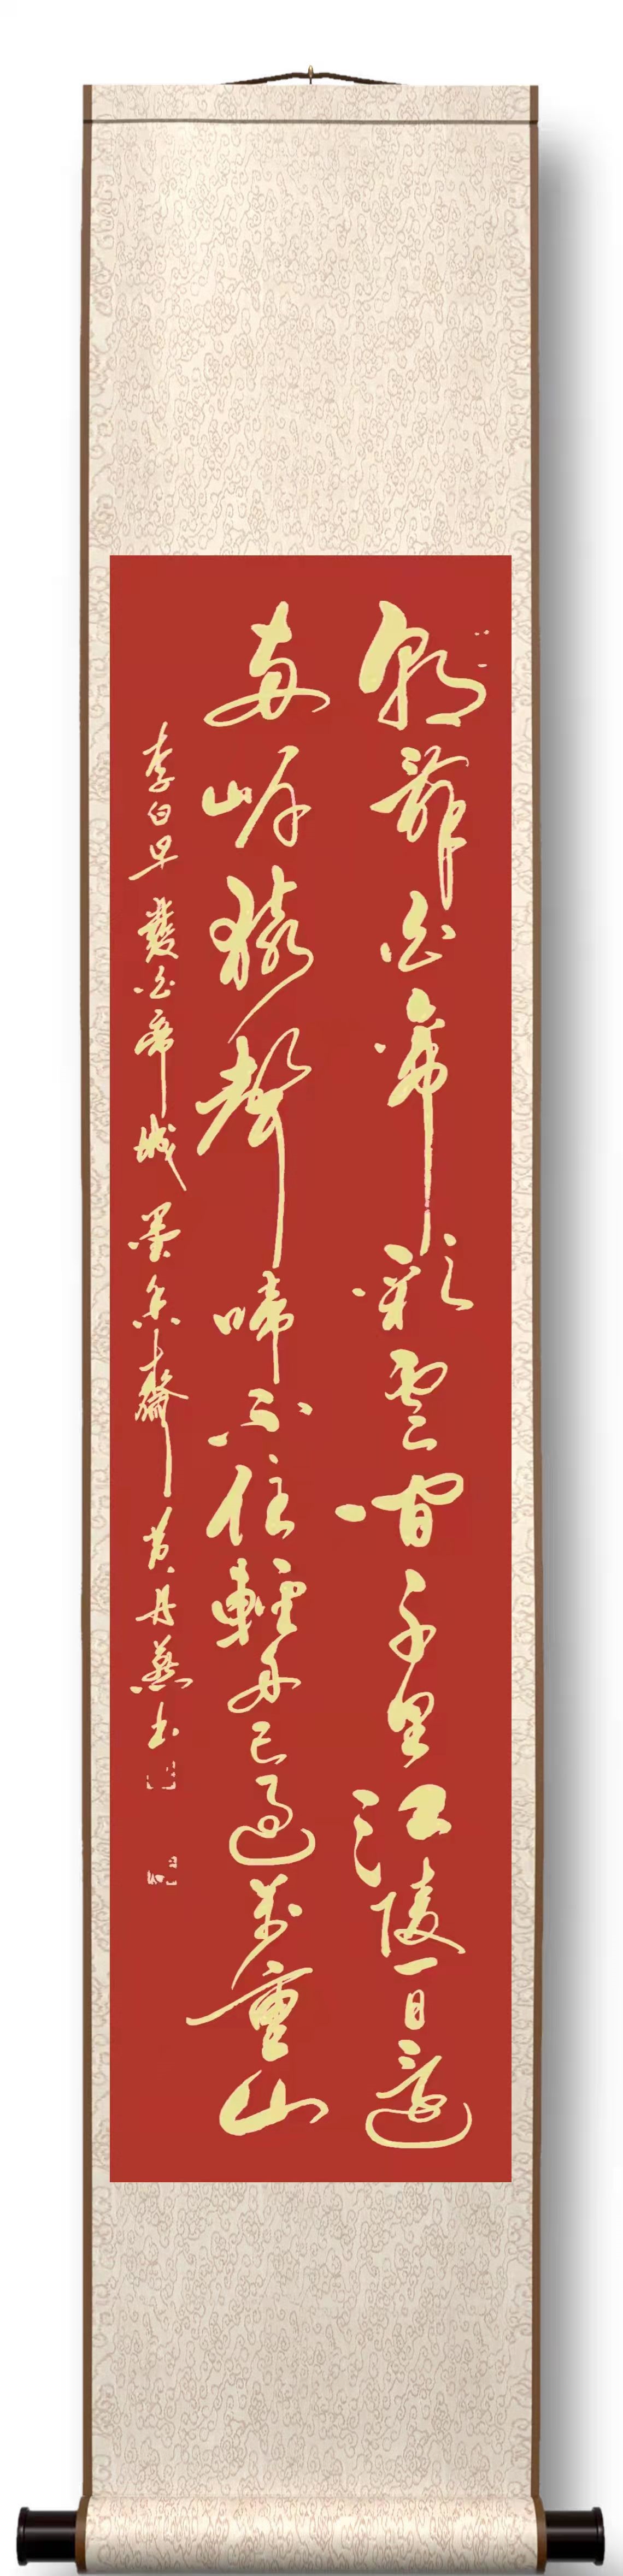 朝辭白帝彩雲間千里江陵一日還
兩岸猿聲啼不住輕舟已過萬重山
李白早發白帝城墨香齋黄丹燕书